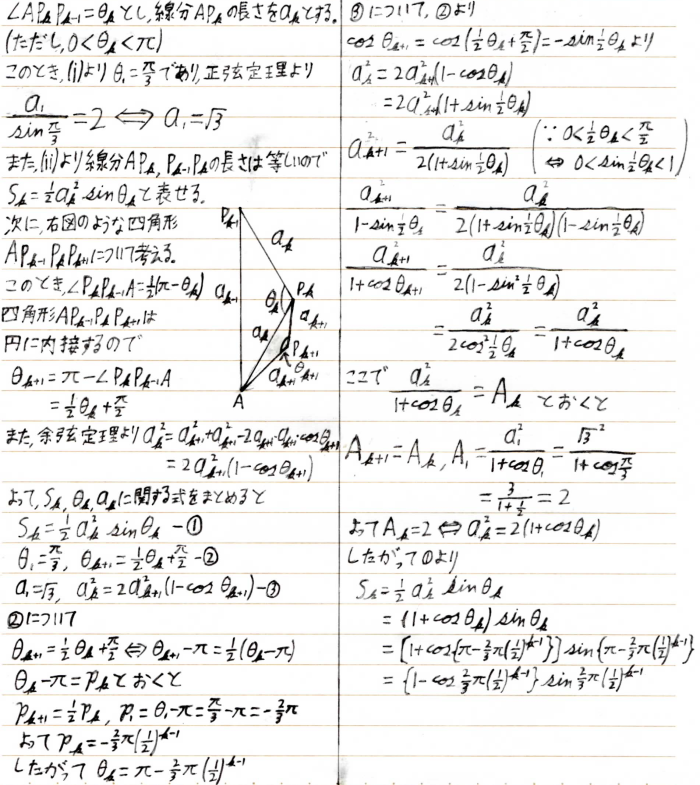 ∠AP_kP_{k-1}=θ_kとし,線分AP_kの長さをa_kとする。
(ただし,0<θ_k<π)
このとき,(i)よりθ_1=π/3であり,正弦定理より
a_1/sin π/3=2⇔a_1=√3
また,(ii)より線分AP_k,P_{k-1}P_kの長さは等しいので
S_k=1/2 a_k^2 sinθ_kと表せる。
次に,右図のような四角形
AP_{k-1}P_kP_{k+1}について考える。
このとき,∠P_kP_{k-1}A=1/2(π-θ_k)
四角形AP_{k-1}P_kP_{k+1}は
円に内接するので
θ_{k+1}=π-∠P_kP_{k-1}A
=1/2 θ_k+π/2
P_{k-1}
a_k
a_{k-1}
θ_k
P_k
a_k
a_{k+1}
P_{k+1}
a_{k+1}
θ_{k+1}
A
また,余弦定理よりa_k^2=a_{k+1}^2+a_{k+1}^2-2a_{k+1}・a_{k+1}・cosθ_{k+1}
=2a_{k+1}^2(1-cosθ_{k+1})
よって,S_k,θ_k,a_kに関する式をまとめると
S_k=1/2 a_k^2 sinθ_k -①
θ_1=π/3, θ_{k+1}=1/2 θ_k+π/2 -②
a_1=√3, a_k^2=2a_{k+1}^2(1-cosθ_{k+1}) -③
②について
θ_{k+1}=1/2 θ_k+π/2⇔θ_{k+1}-π=1/2(θ_k-π)
θ_k-π=p_kとおくと
p_{k+1}=1/2 p_k, p_1=θ_1-π=π/3-π=-2/3 π
よって p_k=-2/3 π(1/2)^{k-1}
したがって θ_k=π-2/3 π(1/2)^{k-1}
③について,②より
cosθ_{k+1}=cos(1/2 θ_k+π/2)=-sin 1/2 θ_kより
a_k^2=2a_{k+1}^2(1-cosθ_k)
=2a_{k+1}^2(1+sin 1/2 θ_k)
a_{k+1}^2=a_k^2/2(1+sin 1/2 θ_k) (∵0<1/2 θ_k<π/2
⇔0<sin 1/2 θ_k<1)
a_{k+1}^2/1-sin 1/2 θ_k=a_k^2/2(1+sin 1/2 θ_k)(1-sin 1/2 θ_k)
a_{k+1}^2/1+cosθ_{k+1}=a_k^2/2(1-sin^2 1/2 θ_k)
=a_k^2/2cos^2 1/2 θ_k=a_k^2/1+cosθ_k
ここで a_k^2/1+cosθ_k=A_k とおくと
A_{k+1}=A_k, A_1=a_1^2/1+cosθ_1=√3^2/1+cos π/3
=3/1+1/2=2
よってA_k=2⇔a_k^2=2(1+cosθ_k)
したがって①より
S_k=1/2 a_k^2 sinθ_k
=(1+cosθ_k)sinθ_k
=[1+cos{π-2/3 π(1/2)^{k-1}}]sin{π-2/3 π(1/2)^{k-1}}
={1-cos 2/3 π(1/2)^{k-1}}sin 2/3 π(1/2)^{k-1}